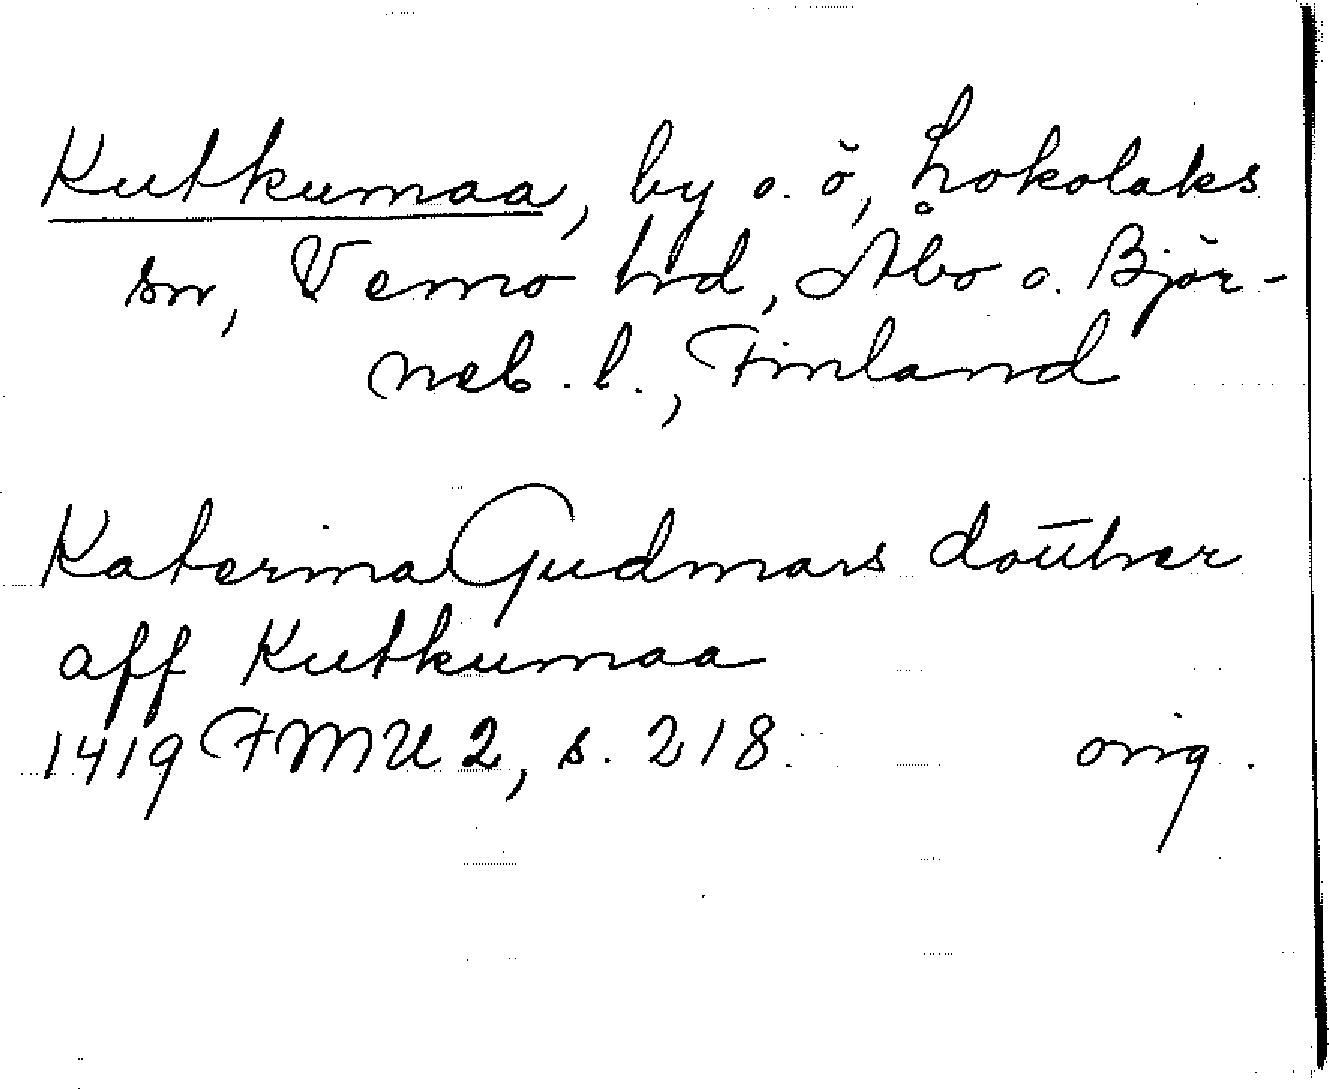 Kutkumaa, by o. ö, Lokolaks
sn, Vemo hrd, Åbo o. Björ-
neb. l., Finland
Katerina Gudmars doūther
aff Kutkumaa
1419 FMU 2, s. 218. orig.